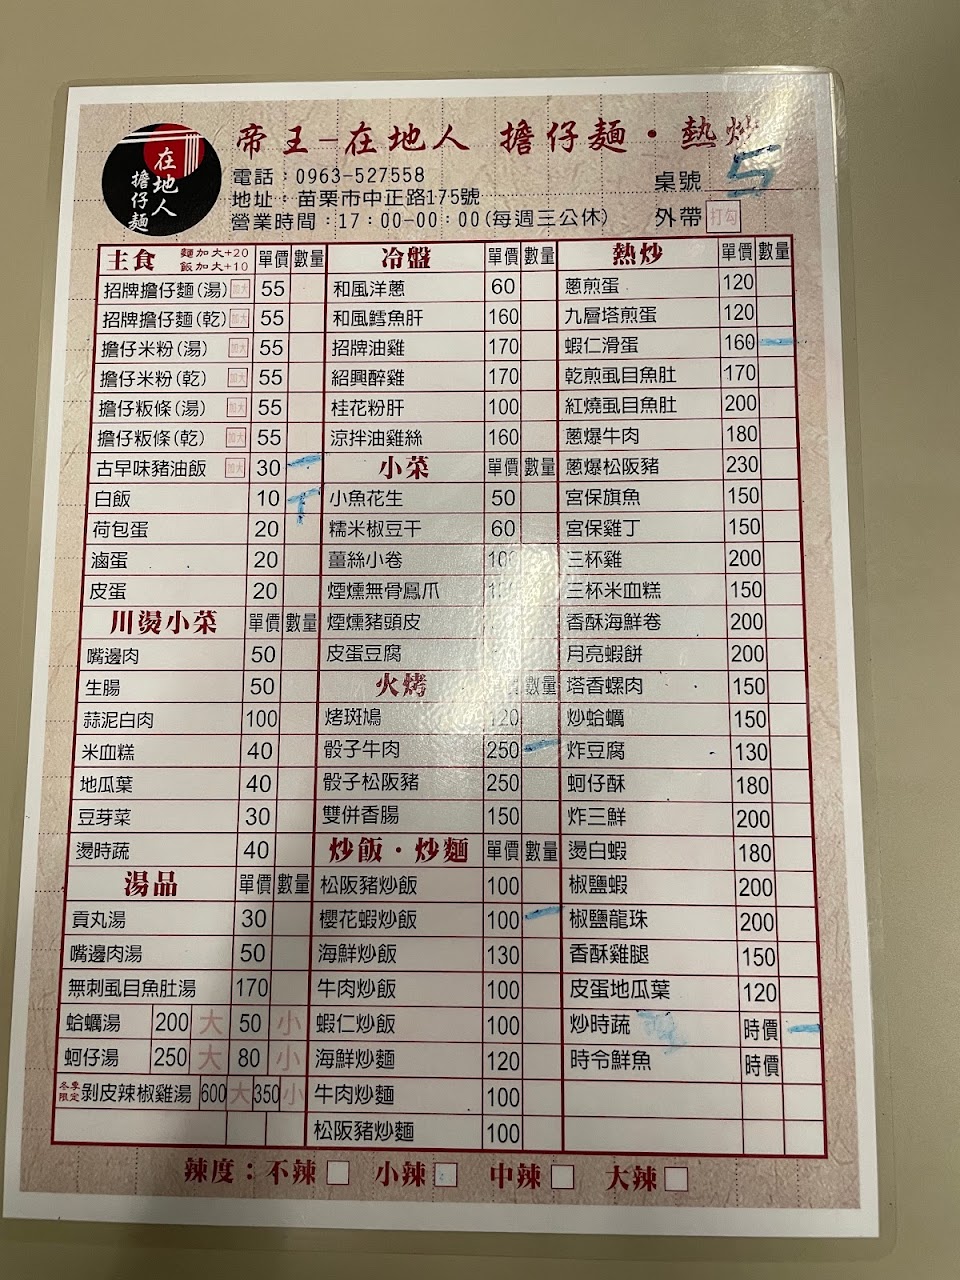 帝王-在地人 擔仔麵·熱炒
在地人
擔仔麵
電話：0963-527558
地址：苗栗市中正路175號
營業時間：17：00-00：00(每週三公休)
桌號 5
外帶 打勾
主食 麵加大+20 飯加大+10 單價 數量
招牌擔仔麵(湯) 加大 55
招牌擔仔麵(乾) 加大 55
擔仔米粉(湯) 加大 55
擔仔米粉(乾) 加大 55
擔仔粄條(湯) 加大 55
擔仔粄條(乾) 加大 55
古早味豬油飯 加大 30 一
白飯 10 T
荷包蛋 20
滷蛋 20
皮蛋 20
川燙小菜 單價 數量
嘴邊肉 50
生腸 50
蒜泥白肉 100
米血糕 40
地瓜葉 40
豆芽菜 30
燙時蔬 40
湯品 單價 數量
貢丸湯 30
嘴邊肉湯 50
無刺虱目魚肚湯 170
蛤蠣湯 200 大 50 小
蚵仔湯 250 大 80 小
冬季限定 剝皮辣椒雞湯 600 大 350 小
冷盤 單價 數量
和風洋蔥 60
和風鱈魚肝 160
招牌油雞 170
紹興醉雞 170
桂花粉肝 100
涼拌油雞絲 160
小菜 單價 數量
小魚花生 50
糯米椒豆干 60
薑絲小卷 100
煙燻無骨鳳爪
煙燻豬頭皮
皮蛋豆腐
火烤 數量
烤斑鳩 120
骰子牛肉 250 一
骰子松阪豬 250
雙併香腸 150
炒飯·炒麵 單價 數量
松阪豬炒飯 100
櫻花蝦炒飯 100 一
海鮮炒飯 130
牛肉炒飯 100
蝦仁炒飯 100
海鮮炒麵 120
牛肉炒麵 100
松阪豬炒麵 100
熱炒 單價 數量
蔥煎蛋 120
九層塔煎蛋 120
蝦仁滑蛋 160 一
乾煎虱目魚肚 170
紅燒虱目魚肚 200
蔥爆牛肉 180
蔥爆松阪豬 230
宮保旗魚 150
宮保雞丁 150
三杯雞 200
三杯米血糕 150
香酥海鮮卷 200
月亮蝦餅 200
塔香螺肉 150
炒蛤蠣 150
炸豆腐 130
蚵仔酥 180
炸三鮮 200
燙白蝦 180
椒鹽蝦 200
椒鹽龍珠 200
香酥雞腿 150
皮蛋地瓜葉 120
炒時蔬 時價 一
時令鮮魚 時價
辣度：不辣 小辣 中辣 大辣